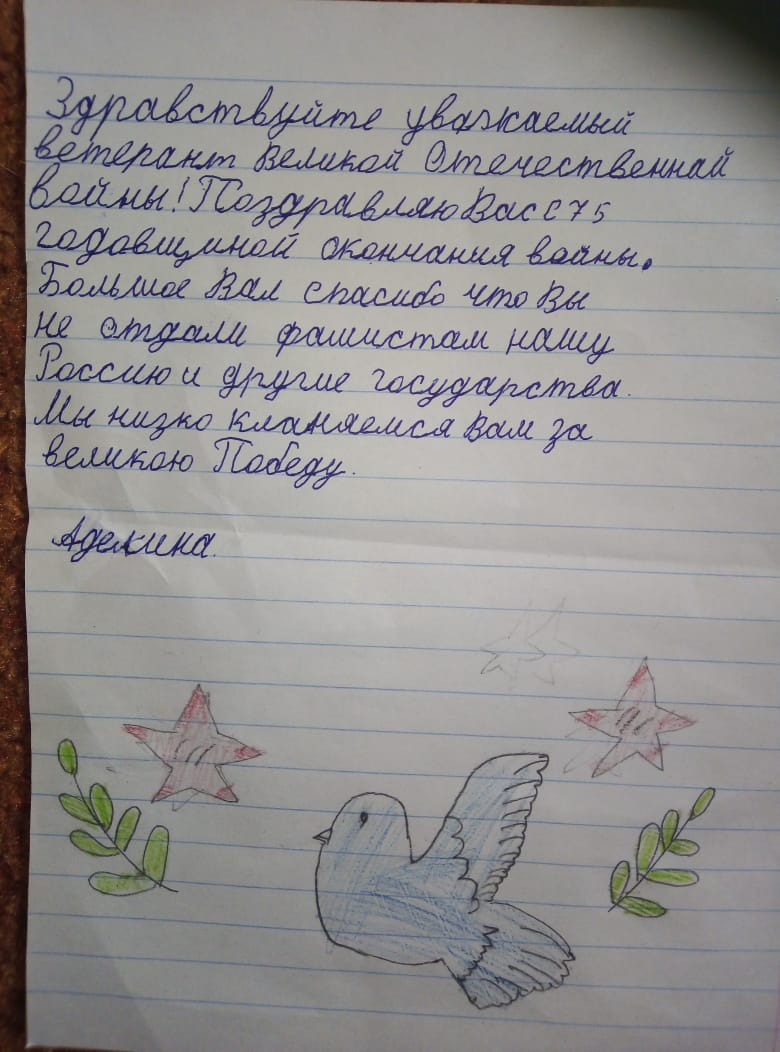 Здравствуйте уважаемый
ветерант Великой Отечественнай
войны! Поздравляю Вас с 75
годовщиной окончания войны.
Большое Вам спасибо что Вы
не отдали фашистам нашу
Россию и другие государства.
Мы низко кланяемся Вам за
великою Победу.
Аделина.